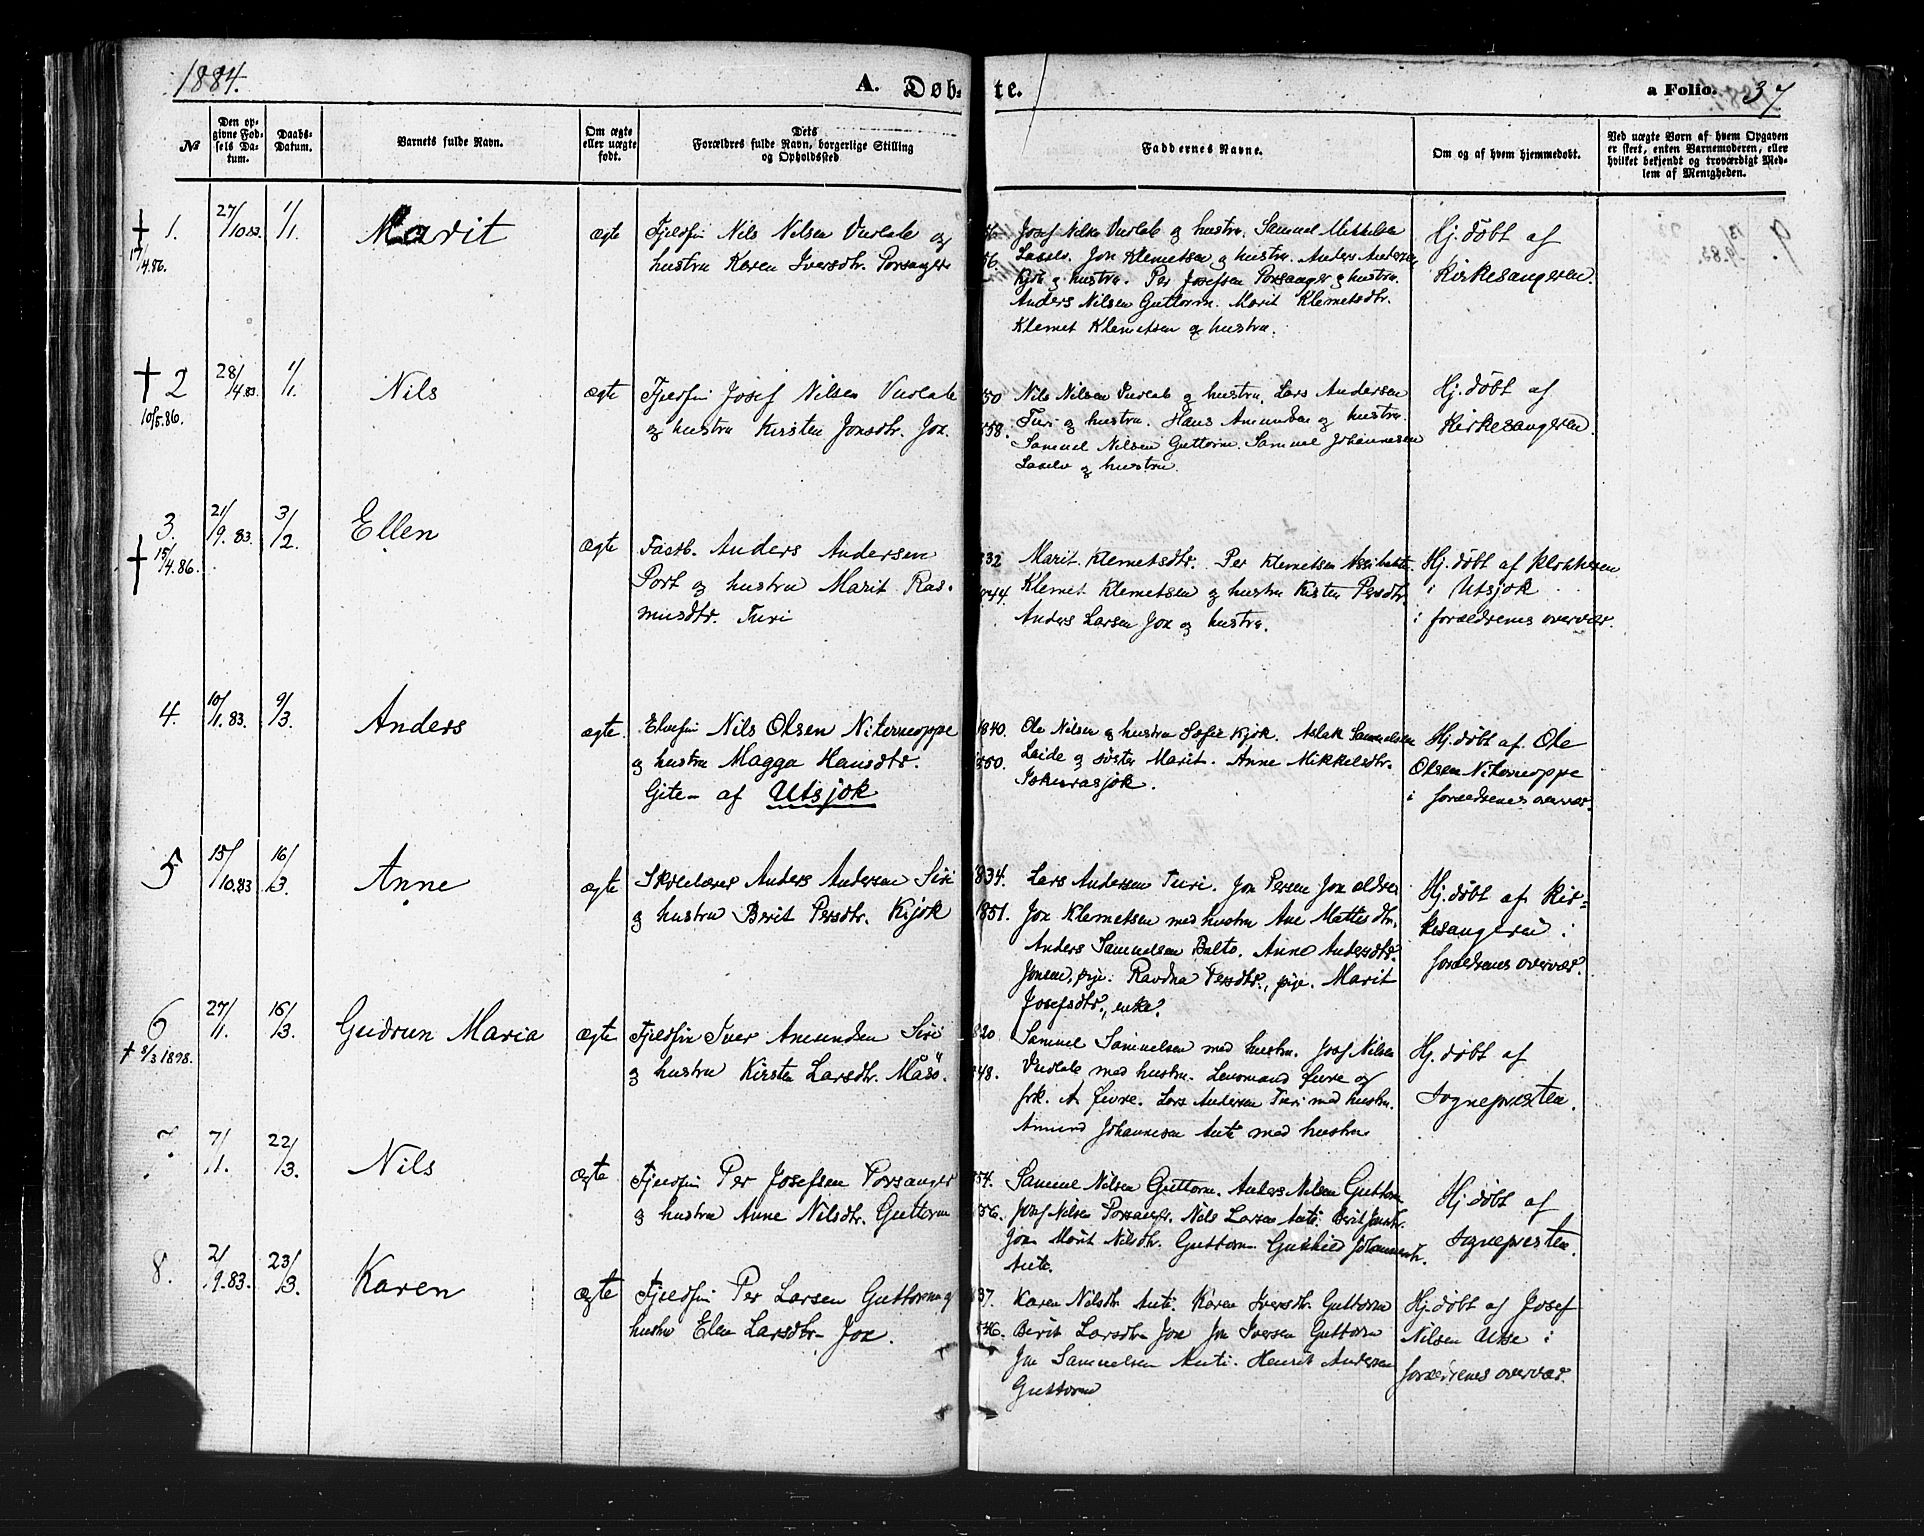 1884.
A. Døbte.
a Folio. 37
№
Den opgivne Fødsels Datum.
Daabs-Datum.
Barnets fulde Navn.
Om ægte eller uægte født.
Dets Forældres fulde Navn, borgerlige Stilling og Opholdssted.
Faddernes Navne.
Om og af hvem hjemmedøbt.
Ved uægte Børn af hvem Opgaven er skeet, enten Barnemoderen, eller hvilket bekjendt og troværdigt Medlem af Menigheden.
† 1.
27/10.83.
1/1.
Marit
ægte
Fjeldfin Nils Nilsen Vuolab og
hustru Karen Iversdtr. Porsanger
56.
Josef Nilsen Vuolab og hustru. Samuel Mikkelsen
Jon Klemetsen og hustru. Anders Andersen
og hustru. Per Josefsen Porsanger og hustru.
Anders Nilsen Guttorm. Marit Klemetsdtr.
Klemet Klemetsen og hustru.
Hj. døbt af
Kirkesangeren.
† 2
10/5.86.
28/4.83.
1/1.
Nils
ægte
Fjeldfin Josef Nilsen Vuolab
og hustru Kirsten Jonsdtr. Jox.
50
58.
Nils Nilsen Vuolab og hustru, Lars Andersen
Turi og hustru. Hans Amundsen og hustru.
Samuel Nilsen Guttorm. Samuel Johannesen
og hustru.
Hj. døbt af
Kirkesangeren.
3.
† 15/4.86.
21/9.83.
3/2.
Ellen
ægte
Fastb. Anders Andersen
Port og hustru Marit Ras-
musdtr. Turi
832
44.
Marit Klemetsdtr. Per Klemetsen
Klemet Klemetsen og hustru Kirsten Persdtr.
Anders Larsen Jox og hustru.
Hj. døbt af Klokkeren
i Utsjok
i forældrenes overvær.
4.
10/11.83.
9/3.
Anders
ægte.
Elvefin Nils Olsen Niterneoppe
og hustru Magga Hansdtr.
Gite- af Utsjok
1840.
1850.
Ole Nilsen og hustru Sofie Kjok. Aslak Samuelsen
Laide og søster Marit. Anne Mikkelsdtr.
Hj. døbt af Ole
Olsen Niterneoppe
i forældrenes overvær.
5
15/10.83
16/3.
Anne
ægte
Skolelærer Anders Andersen Siri
og hustru Berit Persdtr. Kijok
1834.
1851.
Lars Andersen Turi. Jon Persen Jox ældre
Jon Klemetsen med hustru Ane Mattesdtr.
Anders Samuelsen Balto. Anne Andersdtr.
Jonsen, pige. Ravdna Persdtr., pige. Marit
Josefsdtr., enke.
Hj. døbt af Kir-
kesangeren i
forældrenes overvær.
6
† 8/3 1898.
27/1.
16/3.
Gudrun Maria
ægte
Fjeldfin Iver Amundsen Siri
og hustru Kirsten Larsdtr. Måsö.
820
848.
Samuel Samuelsen med hustru. Josef Nilsen
Vuolab med hustru. Lensmand Feire og
frk. A Feire. Lars Andersen Turi med hustru.
Amund Johannesen Anti med hustru
Hj. døbt af
Sognepresten.
7.
7/1.
22/3.
Nils
ægte
Fjeldfin Per Josefsen Porsanger
og hustru Anne Nilsdtr. Guttorm
54.
1856.
Samuel Nilsen Guttorm. Anders Nilsen Guttorm
Josef Nilsen Porsanger. Nils Larsen Anti. Berit Jonsdtr.
Jox Marit Nilsdtr. Guttorm Johannesdtr.
Anti.
Hj. døbt af
Sognepresten.
8.
21/9.83.
23/3.
Karen
ægte
Fjeldfin Per Larsen Guttorm og
hustru Elen Larsdtr. Jox.
37.
46.
Karen Nilsdtr. Anti. Karen Iversdtr. Guttorm
Berit Larsdtr. Jox Jon Iversen Guttorm
Jon Samuelsen Anti. Henrik Andersen
Guttorm
Hj. døbt af Josef
Nilsen Utse i
forældrenes overvær.